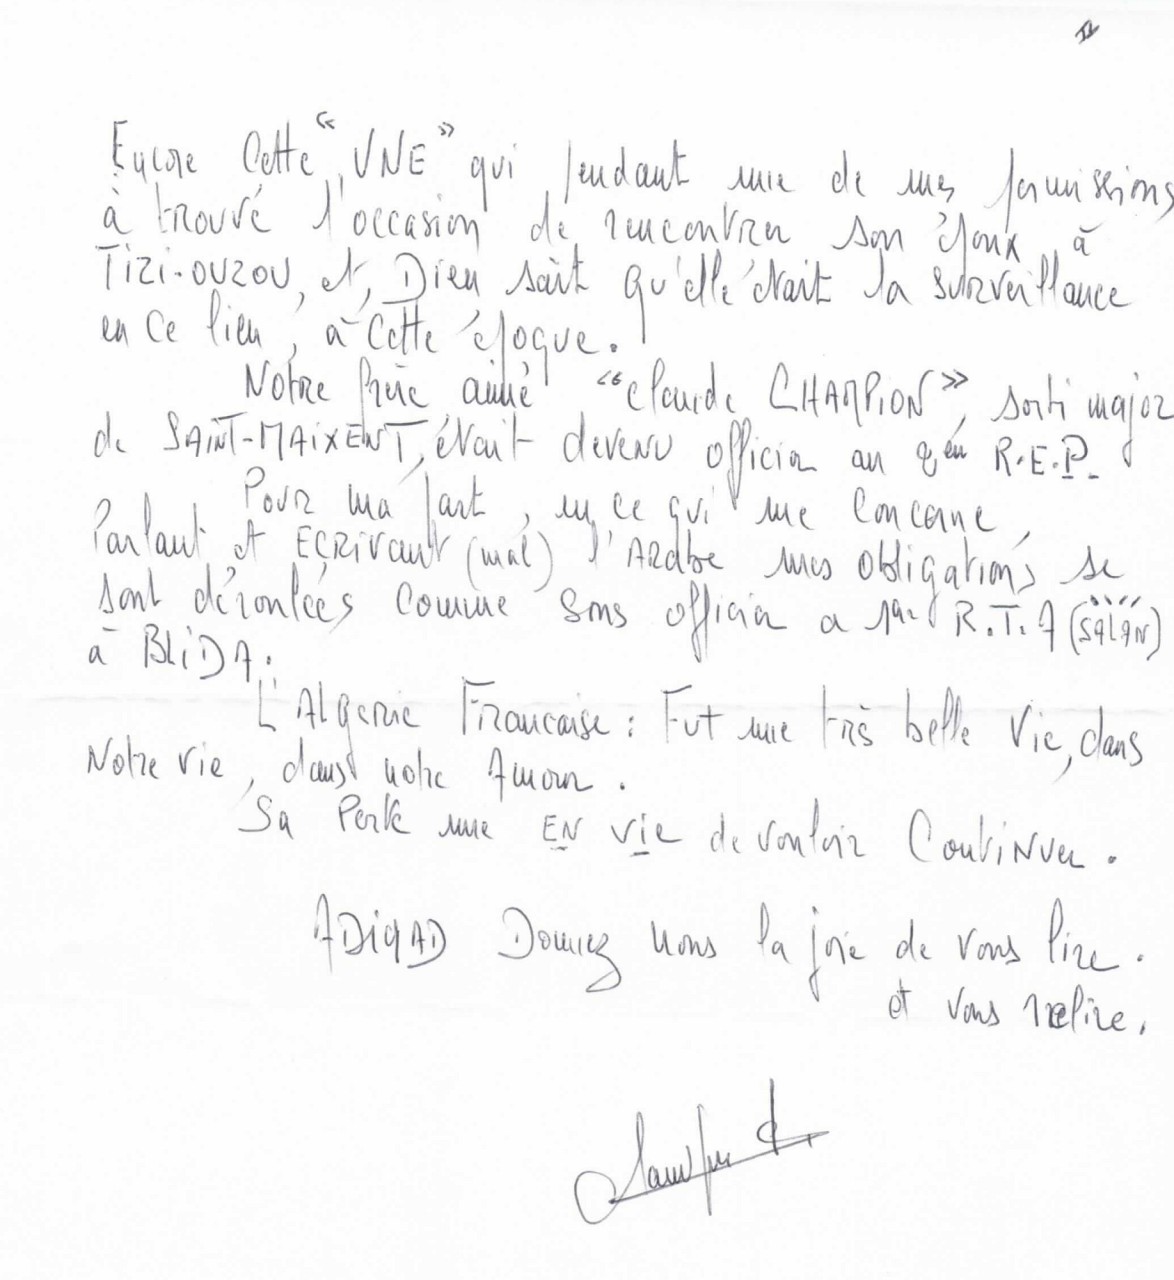 II
Encore Cette "UNE" qui pendant une de mes permissions
à trouvé l'occasion de rencontrer son époux, à
TiZi-OUZOU, et, Dieu sait qu'elle était la surveillance
en ce lieu, à cette époque.
Notre frère aimé "Claude CHAMPION", sorti major
de SAINT-MAIXENT, était devenu officier au 2ème R.E.P.
Pour ma part, en ce qui me concerne,
Parlant et ECRIVANT (mal) l'Arabe mes obligations se
sont déroulées comme sous officier a 1er R.T.A (SALAN)
à BLiDA.
L'Algerie Francaise : Fut une très belle Vie, dans
Notre vie, dans notre Amour.
Sa Perte une EN Vie de vouloir Continuer.
Donnez nous la joie de vous lire.
et vous relire.